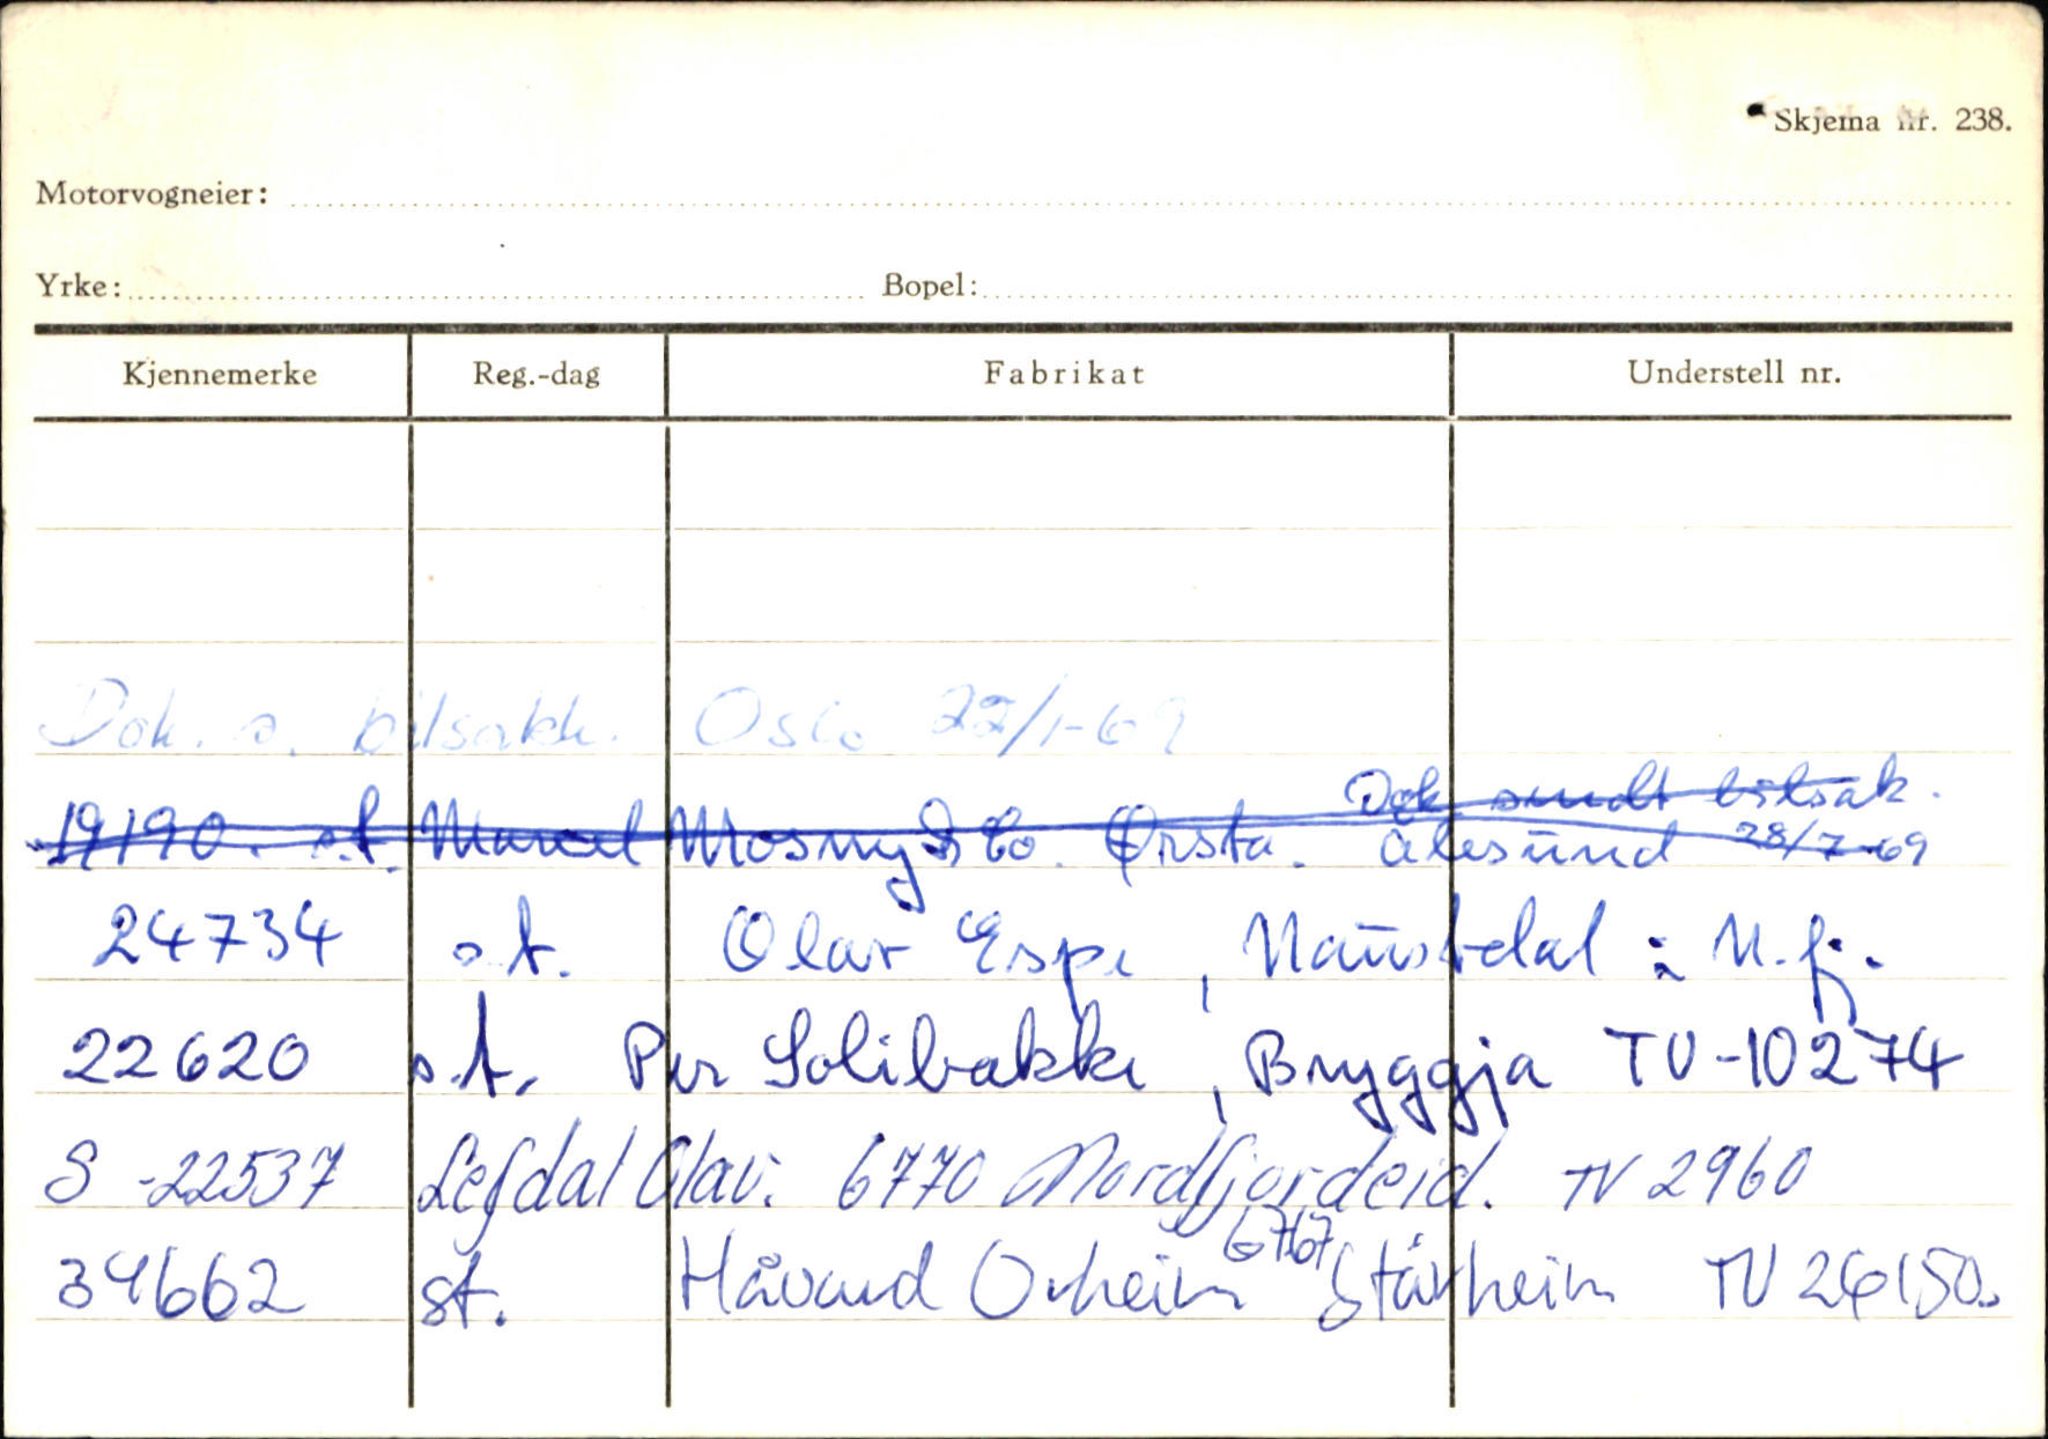 Skjema nr. 238.
Motorvogneier:
Yrke: Bopel:
Kjennemerke Reg.-dag Fabrikat Understell nr.
Dok. s. bilsakk. Oslo 22/1-69
Dok sendt bilsak.
19190. s.t. Marcel Mosny & Co. Ørsta. Ålesund 28/7-69
24734 s.t. Olav Espe, Naustdal i N.fj.
22620 s.t. Per Solibakke, Bryggja TU-10274
S-22537 Lefdal Olav. 6770 Nordfjordeid. TV 2960
34662 st. Håvard Orheim 6767 Stårheim TV 26150.